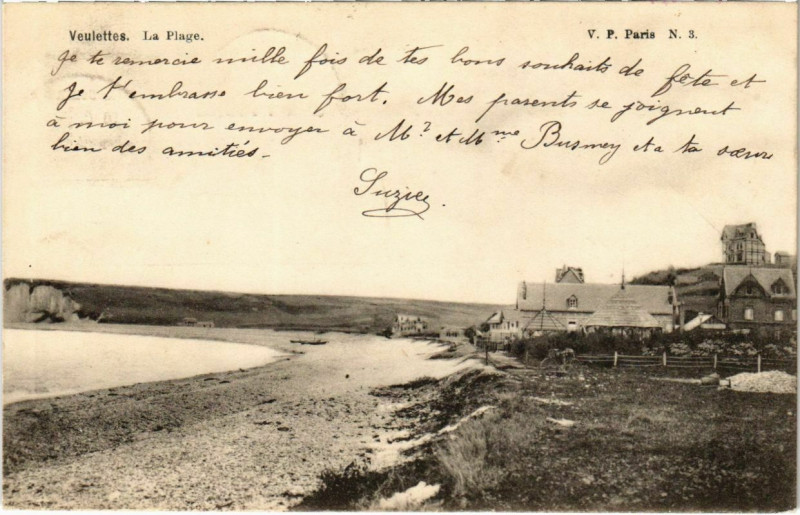 Veulettes. La Plage.
V. P. Paris N. 3.
Je te remercie mille fois de tes bons souhaits de fête et
je t'embrasse bien fort. Mes parents se joignent
à moi pour envoyer à Mr et Mme Busmey et a ta sœur
bien des amitiés.
Suzie